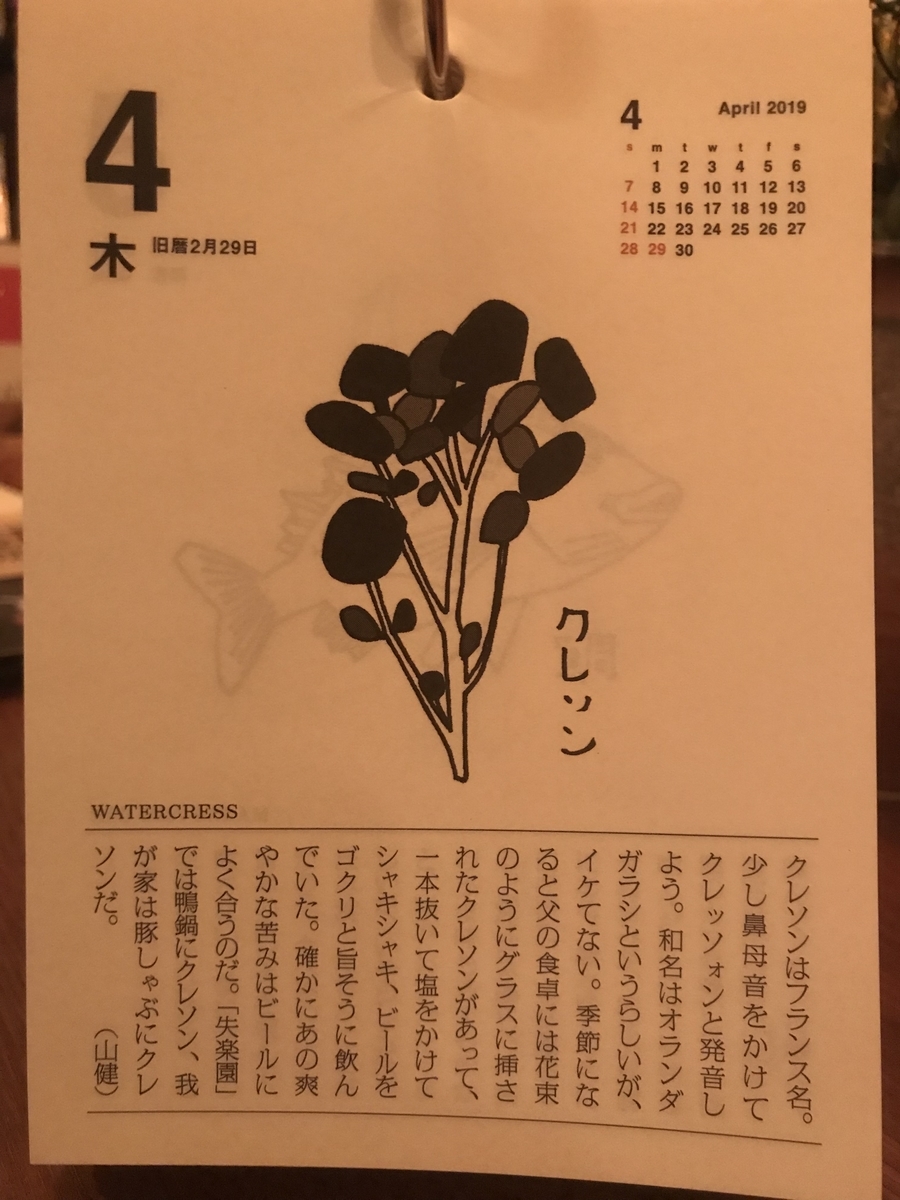 4
木
旧暦2月29日
4 April 2019
s m t w t f s
1 2 3 4 5 6
7 8 9 10 11 12 13
14 15 16 17 18 19 20
21 22 23 24 25 26 27
28 29 30
クレソン
WATERCRESS
クレソンはフランス名。
少し鼻母音をかけて
クレッソォンと発音し
よう。和名はオランダ
ガラシというらしいが、
イケてない。季節にな
ると父の食卓には花束
のようにグラスに挿さ
れたクレソンがあって、
一本抜いて塩をかけて
シャキシャキ、ビールを
ゴクリと旨そうに飲ん
でいた。確かにあの爽
やかな苦みはビールに
よく合うのだ。「失楽園」
では鴨鍋にクレソン、我
が家は豚しゃぶにクレ
ソンだ。 （山健）